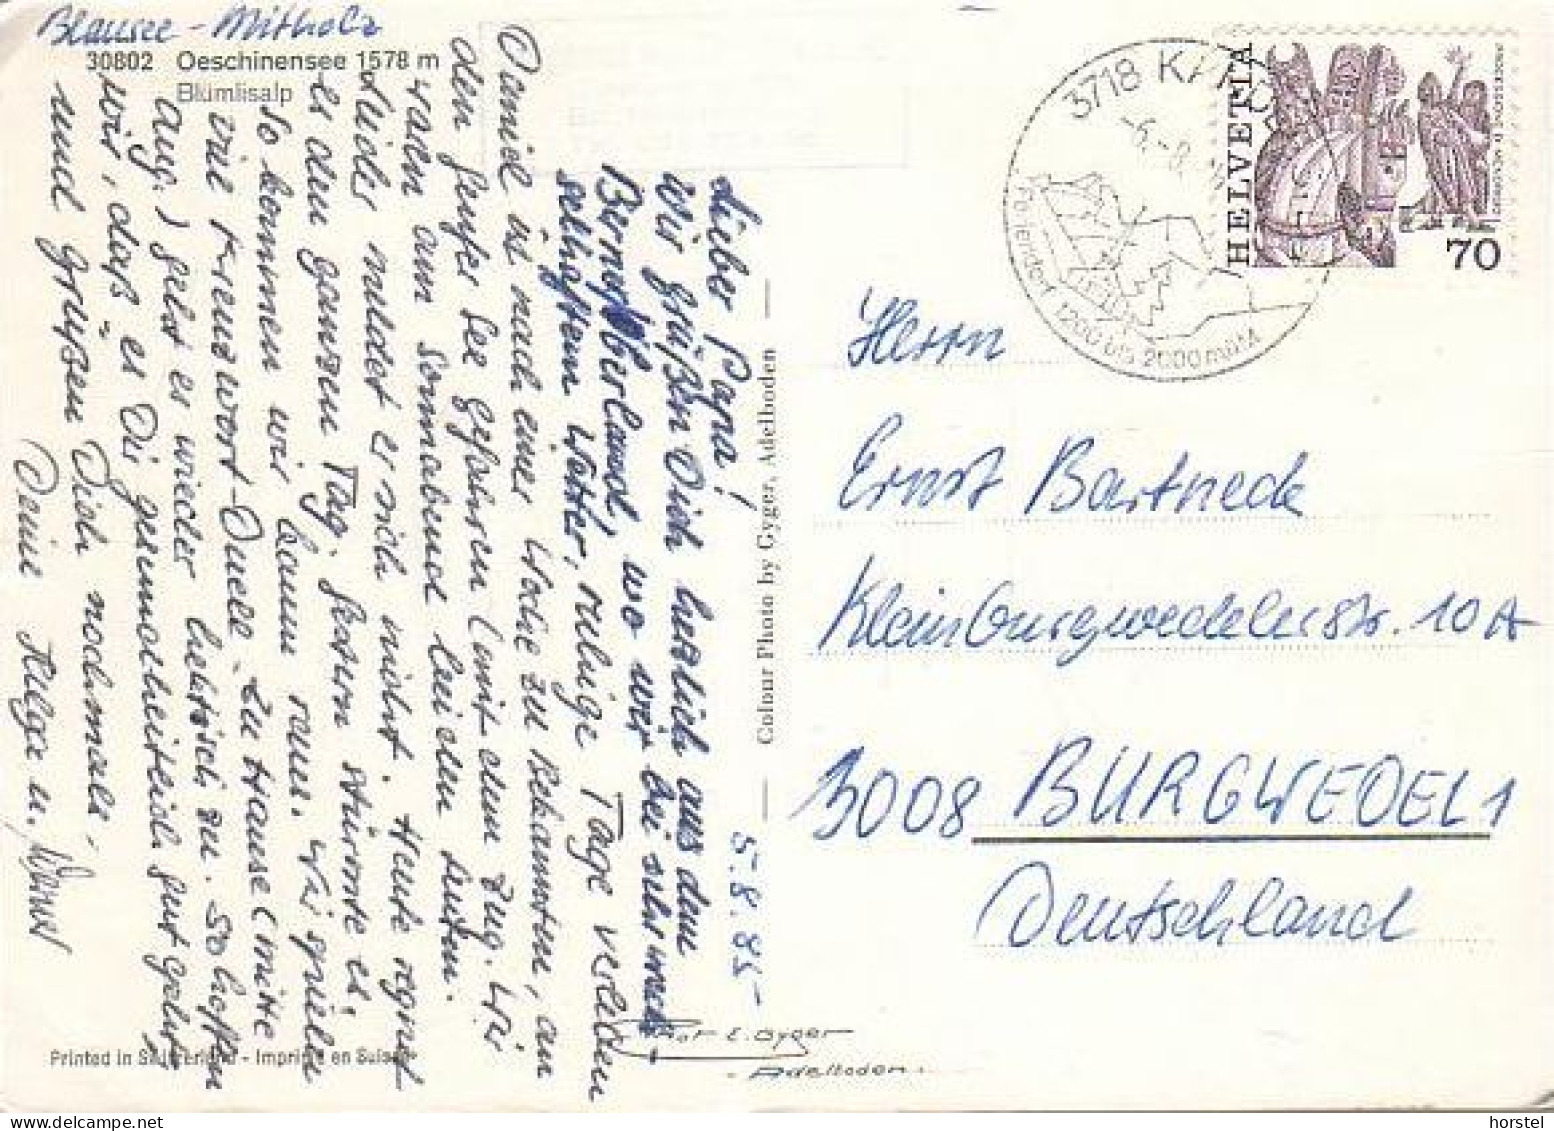 Blausee-Mitholz
30802 Oeschinensee 1578 m
Blümlisalp
5.8.85-
Lieber Papa!
Wir grüßen Dich herzlich aus dem
Berner Oberland, wo wir bei sehr wech-
selhaftem Wetter, ruhige Tage verleben
Daniel ist nach einer Woche zu Bekannten, an
den Genfer See gefahren (mit dem Zug. Wir
waren am Sonnabend bei den Leuten.
Leider meldet er sich nicht. Heute regnet
es den ganzen Tag. Gestern stürmte es,
so kommen wir kaum raus. Wir spielen
viel Kreuzwort-Duell. Zu Hause (mitte
Aug.) geht es wieder hektisch zu. So hoffen
wir, dass es Dir gesundheitlich gut geht,
und grüßen Dich nochmals,
Deine Helga u.
Colour Photo by Gyger, Adelboden
Printed in Switzerland - Imprimé en Suisse
Phot E. Gyger
- Adelboden.
3718 KAN
-6.-8.
Feriendorf 1200 bis 2000 m ü.M.
HELVETIA
70
Herrn
Ernst Bartneck
Kleinburgwedeler Str. 10A
3008 BURGWEDEL 1
Deutschland
horstel